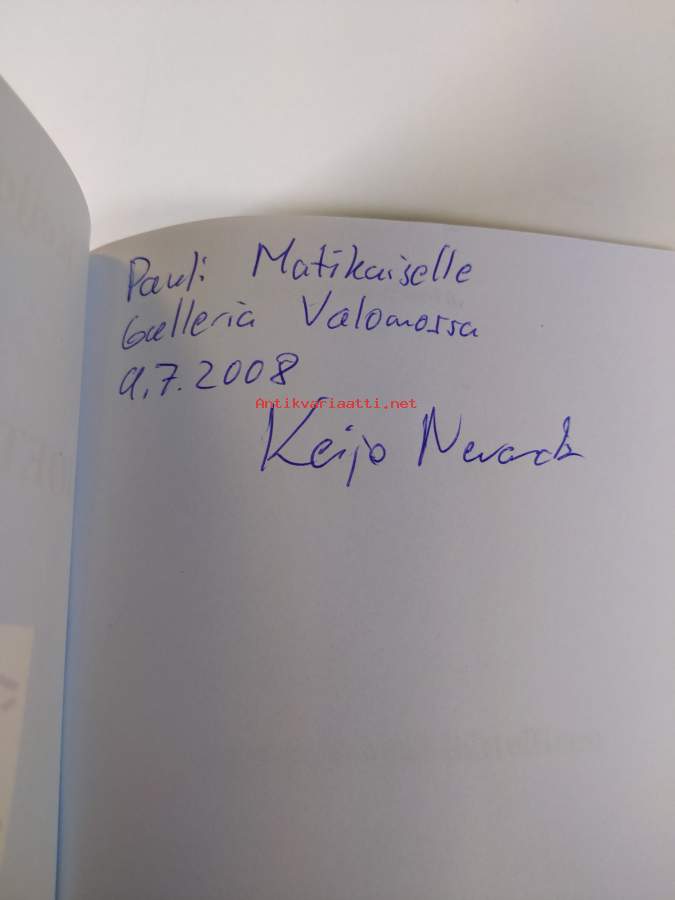 Pauli Matikaiselle
Galleria Valomossa
9.7.2008
Antikvariaatti.net
Keijo